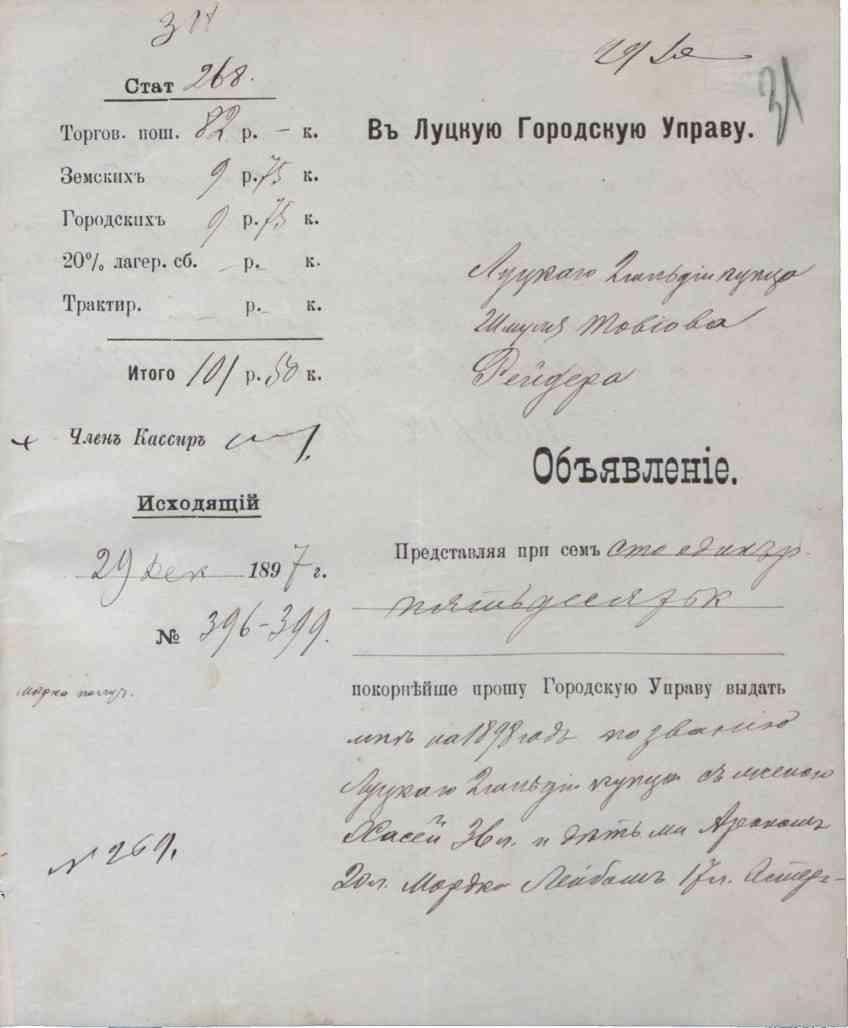 31
Стат 268.
Торгов. пош. 82 р. – к.
Земскихъ 9 р. 75 к.
Городскихъ 9 р. 75 к.
20% лагер. сб. р. к.
Трактир. р. к.
Итого 101 р. 50 к.
Членъ Кассиръ
Исходящій
29 Дек 1897 г.
№ 396-399.
Марка
№ 269.
Въ Луцкую Городскую Управу.
Луцкаго 2 гильдіи купца
Шмуля Товіова
Рейдера
Объявленіе.
Представляя при семъ сто одинъ р.
пятьдесять к
покорнѣйше прошу Городскую Управу выдать
мнѣ на 1898 годъ по званію
Луцкаго 2 гильдіи купца съ женою
Хасей 36 л. и дѣтьми Арономъ
20 л. Мордко Лейбомъ 17 л. Эстер-